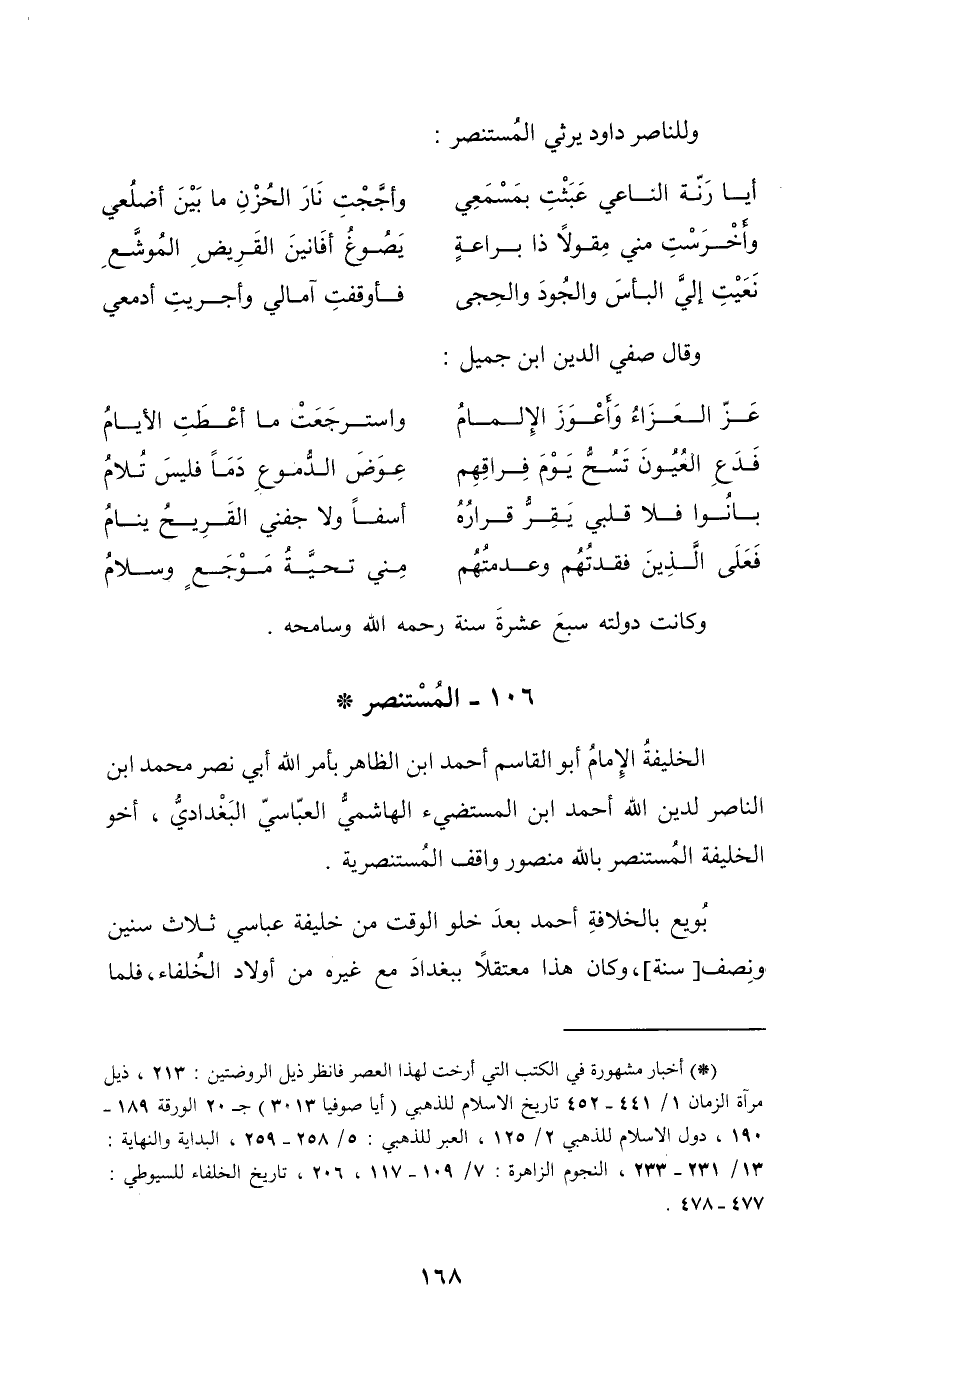 وللناصر داود يرثي المُستنصر :
أيا رَنّة الناعي عَبَثْتِ بمَسْمَعِي وأجَّجْتِ نَارَ الحُزْنِ ما بَيْنَ أضلُعي
وأَخْرَسْتِ مني مِقولاً ذا براعةٍ يَصُوغُ أفَانينَ القَريضِ المُوشَّعِ
نَعَيْتِ إليَّ البأسَ والجُودَ والحِجى فأوقفتِ آمالي وأجريتِ أدمعي
وقال صفي الدين ابن جميل :
عَزّ العَزَاءُ وَأَعْوَزَ الإلمامُ واسترجَعَتْ ما أعْطَتِ الأيامُ
فَدَعِ العُيُونَ تَسُحُّ يَوْمَ فِراقِهِم عِوَضَ الدُّموعِ دَمَاً فليسَ تُلامُ
بانُوا فلا قلبي يَقِرُّ قرارُهُ أسفاً ولا جفني القَرِيحُ ينامُ
فَعَلَى الَّذِينَ فقدتُهُم وعدمتُهُم مِني تحيَّةُ مَوْجَعٍ وسلامُ
وكانت دولته سبعَ عشرةَ سنة رحمه الله وسامحه .
١٠٦ - المُسْتنصر *
الخليفةُ الإمامُ أبو القاسم أحمد ابن الظاهر بأمر الله أبي نصر محمد ابن
الناصر لدين الله أحمد ابن المستضيء الهاشميُّ العبّاسيّ البَغْداديُّ ، أخو
الخليفة المُستنصر بالله منصور واقف المُستنصرية .
بُويع بالخلافةِ أحمد بعدَ خلو الوقت من خليفة عباسي ثلاث سنين
ونِصف[ سنة]، وكان هذا معتقلاً ببغدادَ مع غيره من أولاد الخُلفاء، فلما
(*) أخبار مشهورة في الكتب التي أرخت لهذا العصر فانظر ذيل الروضتين : ٢١٣ ، ذيل
مرآة الزمان ١/ ٤٤١ - ٤٥٢ تاريخ الاسلام للذهبي ( أيا صوفيا ٣٠١٣ ) جـ ٢٠ الورقة ١٨٩ -
١٩٠ ، دول الاسلام للذهبي ٢/ ١٢٥ ، العبر للذهبي : ٥/ ٢٥٨ - ٢٥٩ ، البداية والنهاية :
١٣/ ٢٣١ - ٢٣٣ ، النجوم الزاهرة : ٧/ ١٠٩ - ١١٧ ، ٢٠٦ ، تاريخ الخلفاء للسيوطي :
٤٧٧ - ٤٧٨ .
١٦٨